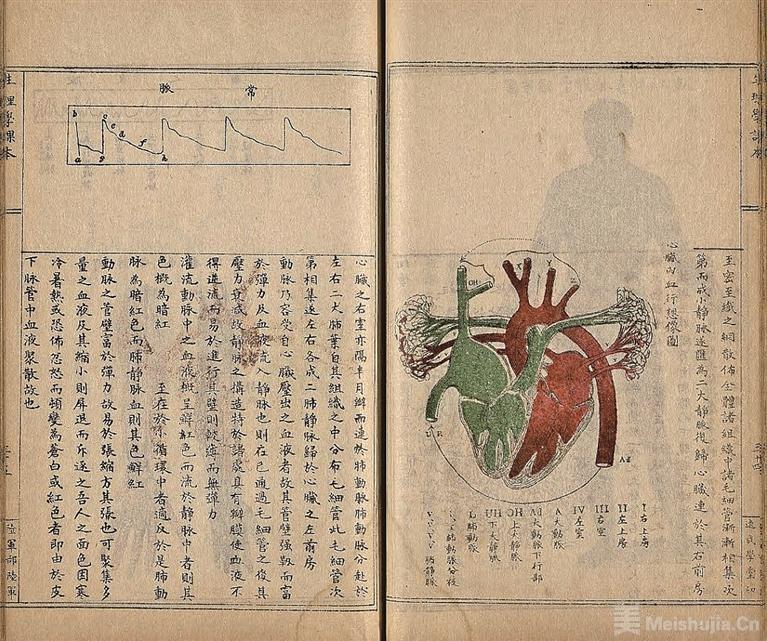 生理學課本
至密至纖之網散佈全體諸組織中諸毛細管漸漸相集次
第而成小静脉遂匯為二大静脉復歸心臟連於其右前房
心臟內血行想像圖
OH
Ad
R
I 右上房
II 左上房
III 右室
IV 左室
A 大動脈
Ad 大動脈下行部
OH 上大静脈
UH 下大静脈
L 肺動脈
肺動脈分枝
肺静脈
生理學課本
陸軍
常脈
b c e d f
a g h
心臟之右室亦隔半月瓣而連於肺動脈肺動脈分赴於
左右二大肺葉自其組織之中分布毛細管此毛細管次
第相集遂左右各成二肺静脈歸於心臟之左前房
動脈乃容受自心臟壓出之血液者故其管壁強靱而富
於彈力及血液流入静脉也則在已通過毛細管之後其
壓力覚或故静脉之構造特於諸處具有瓣膜使血液不
得逆流而易於進行其壁則較薄而無彈力
灌流動脈中之血液概呈鮮紅色而流於静脈中者則其
色概為暗紅 至在於小循環中者適反於是肺動
脉為暗紅色而肺静脉血則其色鮮紅
動脉之管壁富於彈力故易於張縮方其張也可聚集多
量之血液及其縮小則屏進而斥逐之吾人之面色因寒
冷暑熱或恐怖忿怒而頓變為蒼白或紅色者即由於皮
下脉管中血液聚散故也
Meishujia.Cn